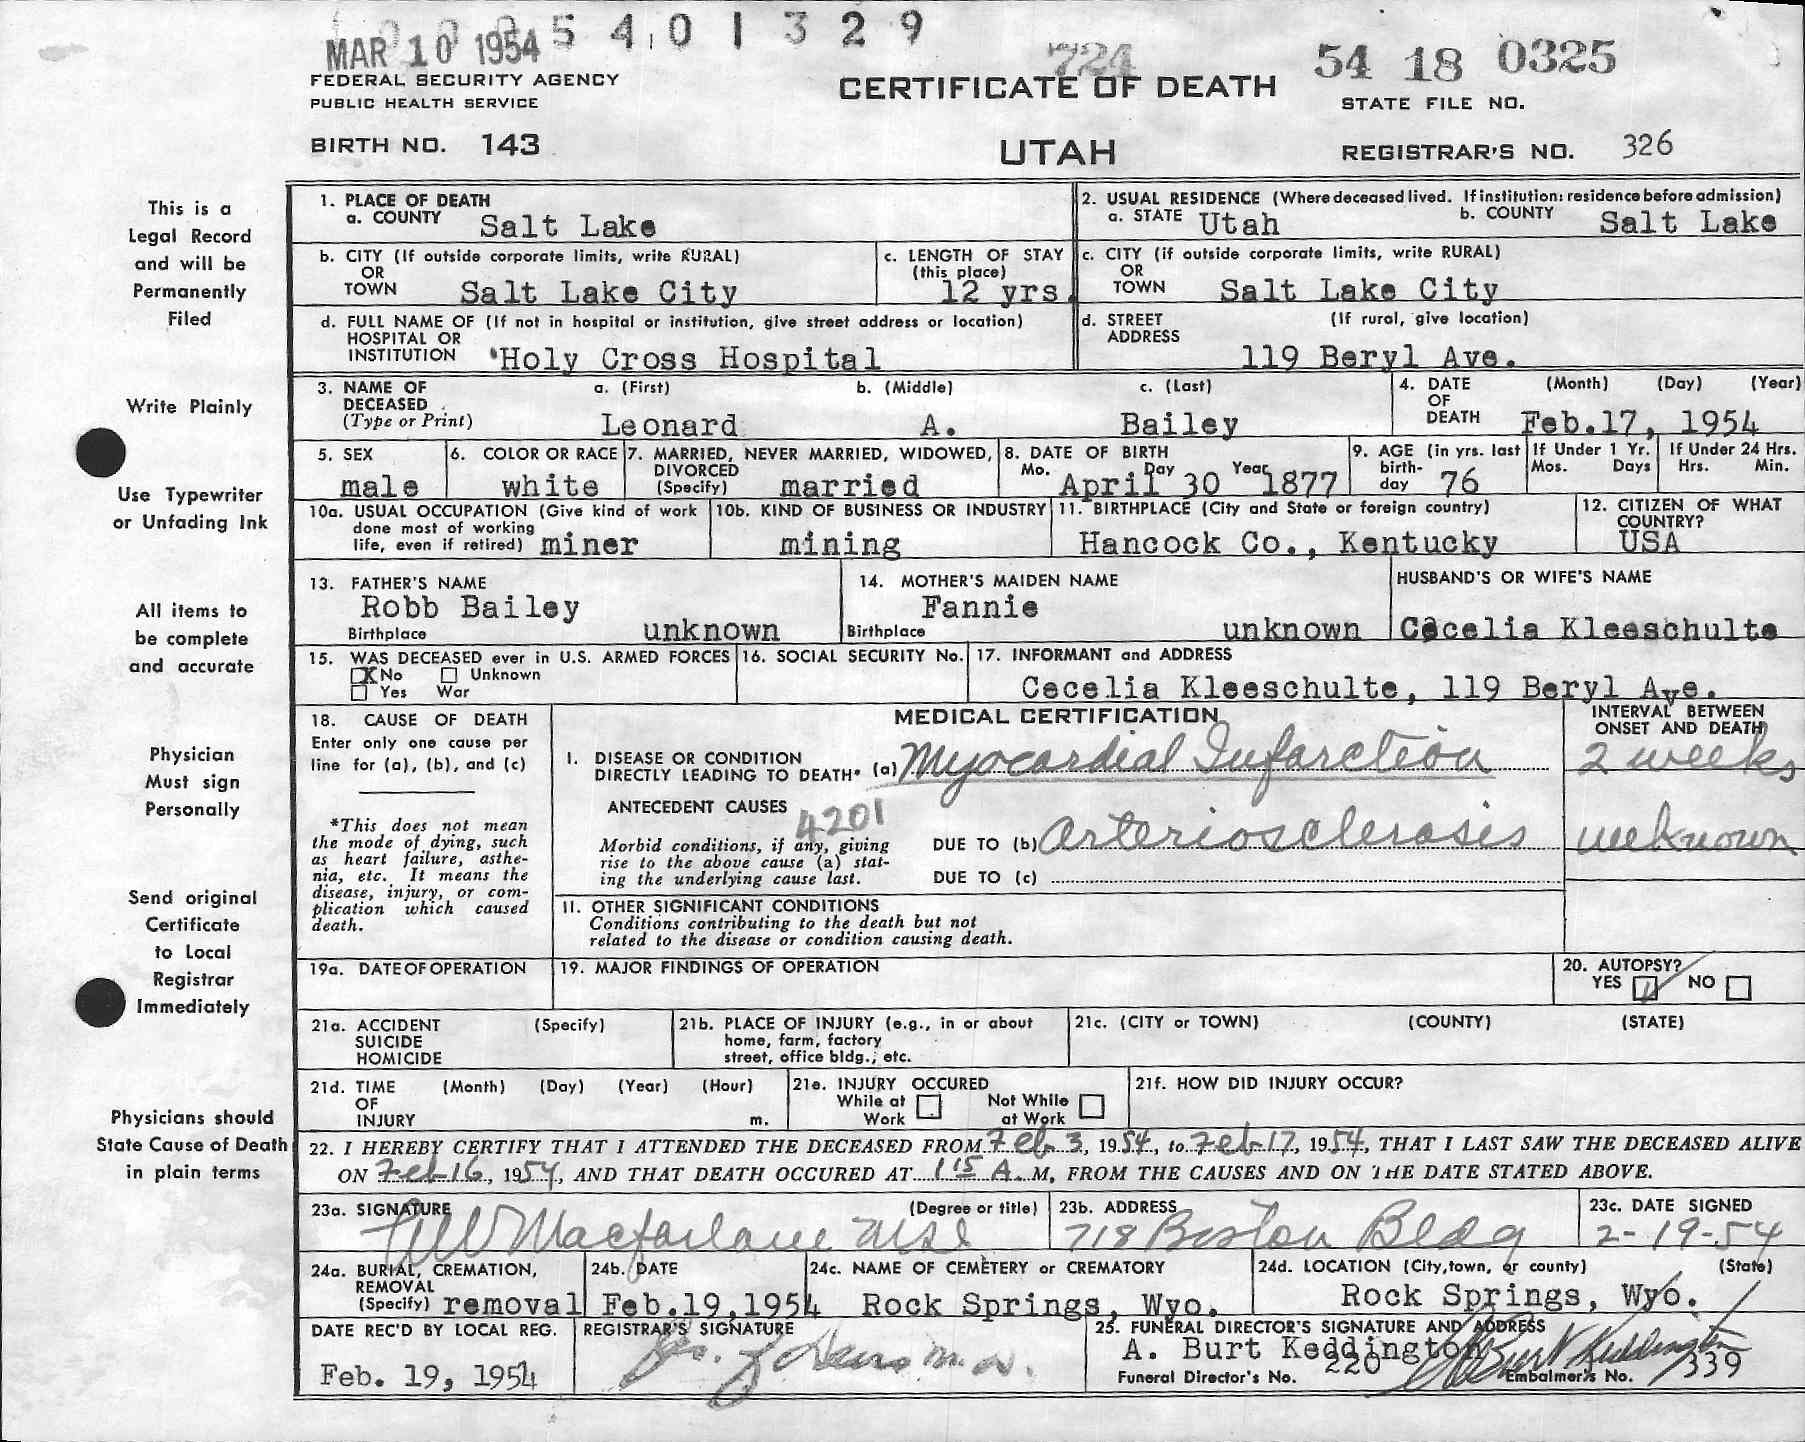 MAR 10 1954 5 4 0 1 3 2 9
724
54 18 0325
FEDERAL SECURITY AGENCY
PUBLIC HEALTH SERVICE
CERTIFICATE OF DEATH
STATE FILE NO.
BIRTH NO. 143
UTAH
REGISTRAR'S NO. 326
This is a
Legal Record
and will be
Permanently
Filed
Write Plainly
Use Typewriter
or Unfading Ink
All items to
be complete
and accurate
Physician
Must sign
Personally
Send original
Certificate
to Local
Registrar
Immediately
Physicians should
State Cause of Death
in plain terms
1. PLACE OF DEATH
a. COUNTY Salt Lake
2. USUAL RESIDENCE (Where deceased lived. If institution: residence before admission)
a. STATE Utah b. COUNTY Salt Lake
b. CITY (If outside corporate limits, write RURAL)
OR
TOWN Salt Lake City
c. LENGTH OF STAY
(this place)
12 yrs.
c. CITY (if outside corporate limits, write RURAL)
OR
TOWN Salt Lake City
d. FULL NAME OF (If not in hospital or institution, give street address or location)
HOSPITAL OR
INSTITUTION Holy Cross Hospital
d. STREET (If rural, give location)
ADDRESS
119 Beryl Ave.
3. NAME OF a. (First) b. (Middle) c. (Last)
DECEASED
(Type or Print) Leonard A. Bailey
4. DATE (Month) (Day) (Year)
OF
DEATH Feb.17, 1954
5. SEX
male
6. COLOR OR RACE
white
7. MARRIED, NEVER MARRIED, WIDOWED,
DIVORCED
(Specify) married
8. DATE OF BIRTH
Mo. Day Year
April 30 1877
9. AGE (in yrs. last
birth-
day 76
If Under 1 Yr.
Mos. Days
If Under 24 Hrs.
Hrs. Min.
10a. USUAL OCCUPATION (Give kind of work
done most of working
life, even if retired) miner
10b. KIND OF BUSINESS OR INDUSTRY
mining
11. BIRTHPLACE (City and State or foreign country)
Hancock Co., Kentucky
12. CITIZEN OF WHAT
COUNTRY?
USA
13. FATHER'S NAME
Robb Bailey
Birthplace unknown
14. MOTHER'S MAIDEN NAME
Fannie
Birthplace unknown
HUSBAND'S OR WIFE'S NAME
Cecelia Kleeschulte
15. WAS DECEASED ever in U.S. ARMED FORCES
X No Unknown
Yes War
16. SOCIAL SECURITY No.
17. INFORMANT and ADDRESS
Cecelia Kleeschulte, 119 Beryl Ave.
18. CAUSE OF DEATH
Enter only one cause per
line for (a), (b), and (c)
*This does not mean
the mode of dying, such
as heart failure, asthe-
nia, etc. It means the
disease, injury, or com-
plication which caused
death.
MEDICAL CERTIFICATION
INTERVAL BETWEEN
ONSET AND DEATH
I. DISEASE OR CONDITION
DIRECTLY LEADING TO DEATH* (a) Myocardial Infarction 2 weeks
ANTECEDENT CAUSES
4201
Morbid conditions, if any, giving
rise to the above cause (a) stat-
ing the underlying cause last.
DUE TO (b) Arteriosclerosis unknown
DUE TO (c)
11. OTHER SIGNIFICANT CONDITIONS
Conditions contributing to the death but not
related to the disease or condition causing death.
19a. DATE OF OPERATION
19. MAJOR FINDINGS OF OPERATION
20. AUTOPSY?
YES NO
21a. ACCIDENT (Specify)
SUICIDE
HOMICIDE
21b. PLACE OF INJURY (e.g., in or about
home, farm, factory
street, office bldg., etc.
21c. (CITY or TOWN) (COUNTY) (STATE)
21d. TIME (Month) (Day) (Year) (Hour)
OF
INJURY m.
21e. INJURY OCCURED
While at Not While
Work at Work
21f. HOW DID INJURY OCCUR?
22. I HEREBY CERTIFY THAT I ATTENDED THE DECEASED FROM Feb 3, 1954, to Feb 17, 1954, THAT I LAST SAW THE DECEASED ALIVE
ON Feb 16, 1954, AND THAT DEATH OCCURED AT 1 15 A. M, FROM THE CAUSES AND ON THE DATE STATED ABOVE.
23a. SIGNATURE (Degree or title)
Macfarlane
23b. ADDRESS
718 Boston Bldg
23c. DATE SIGNED
2-19-54
24a. BURIAL, CREMATION,
REMOVAL
(Specify) removal
24b. DATE
Feb.19,1954
24c. NAME OF CEMETERY or CREMATORY
Rock Springs, Wyo.
24d. LOCATION (City, town, or county) (State)
Rock Springs, Wyo.
DATE REC'D BY LOCAL REG.
Feb. 19, 1954
REGISTRAR'S SIGNATURE
25. FUNERAL DIRECTOR'S SIGNATURE AND ADDRESS
A. Burt Keddington
Burt Keddington
Funeral Director's No. 220 Embalmer's No. 339